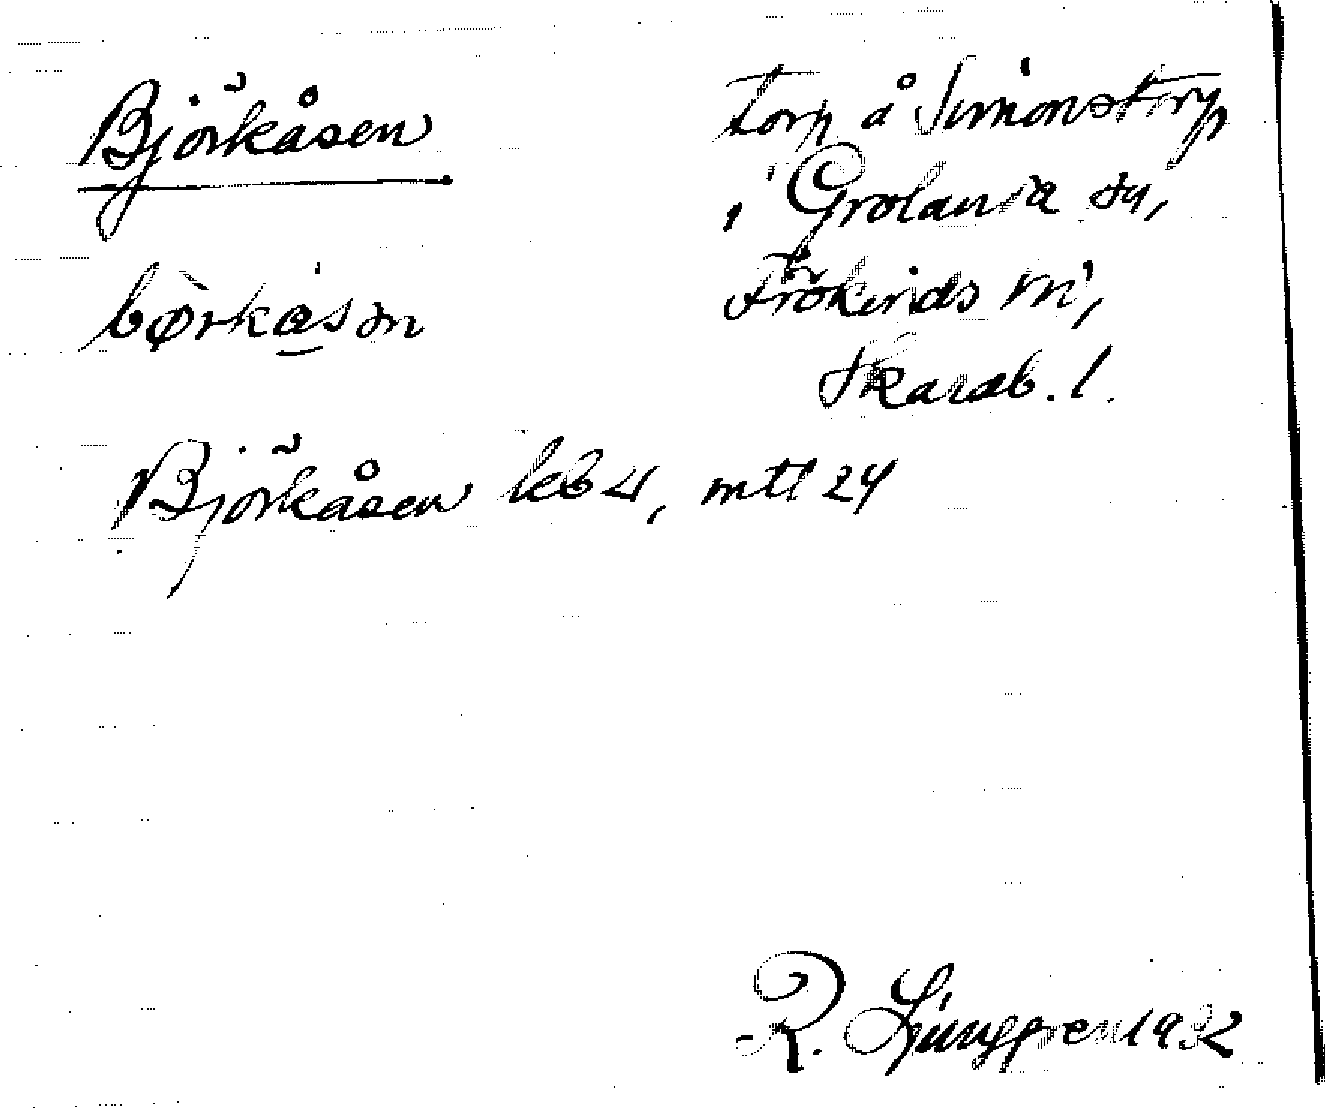 Björkåsen
Torp å Simonstorp
i Grolanda sn,
bǿrkås ən
Frökinds hd,
Skarab. l.
Björkåsen kb 4, mtl 24
R. Ljunggren 1932